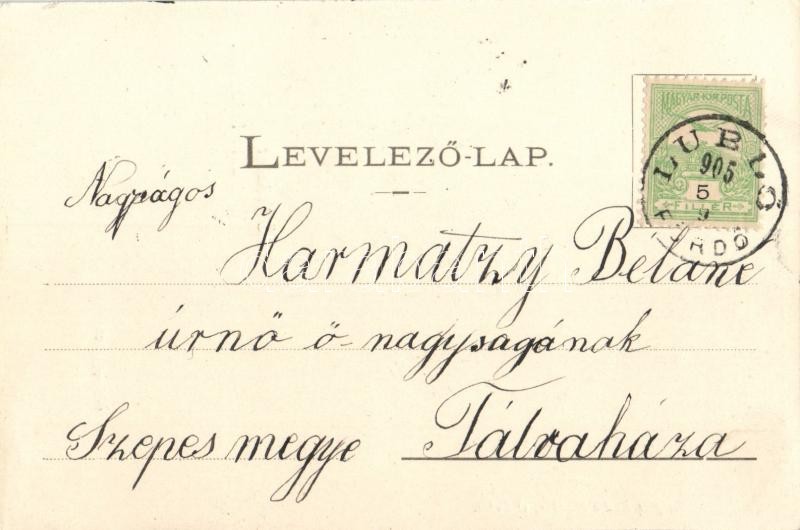 MAGYAR KIR. POSTA
5
FILLÉR
LUBLÓ
905
FÜRDŐ
LEVELEZŐ-LAP.
Nagyságos
Harmatzy Beláné
úrnő ő nagyságának
Szepes megye Tátraháza